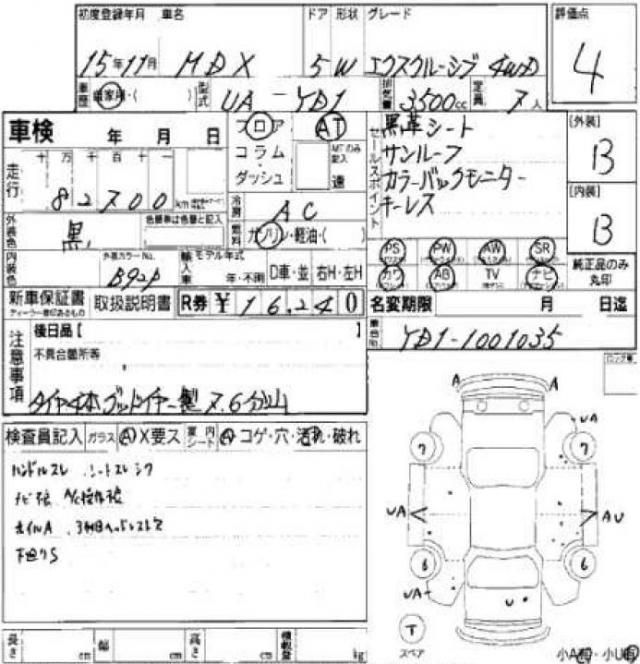 初度登録年月 車名 ドア 形状 グレード 評価点
15年11月 MDX 5 W エクスクルーシブ 4WD 4
車歴 自家用・( ) 型式 UA-YD1 排気量 3500cc 定員 7人
車検 年 月 日 フロア AT セールスポイント 黒革シート [外装]
コラム・ MTのみ記入 サンルーフ B
走行 十 万 千 百 十 一 ダッシュ 速 カラーバックモニター
82700km キーレス [内装]
冷房 AC B
外装色 黒 色替車は色番と記入 燃料 ガソリン・軽油・( )
PS PW AW SR
内装色 外装カラーNo. B92P 輸入車 モデル年式 年・不明 D車・並 右H・左H カワ AB TV ナビ 純正品のみ丸印
新車保証書 取扱説明書 R券 ¥ 16240 名変期限 月 日迄
車台No. YD1-1001035
注意事項 後日品【 】
不具合箇所等
タイヤ4本グッドイヤー製 7.6分山
検査員記入 ガラス A X要ス 室内シート A コゲ・穴・汚れ・破れ
ハンドルスレ シートスレシワ
ホイルA
下廻りS
A A
UA
7 7
UA AU
6 6
UA
U
T
スペア
長さ cm 幅 cm 高さ cm 積載量 kg